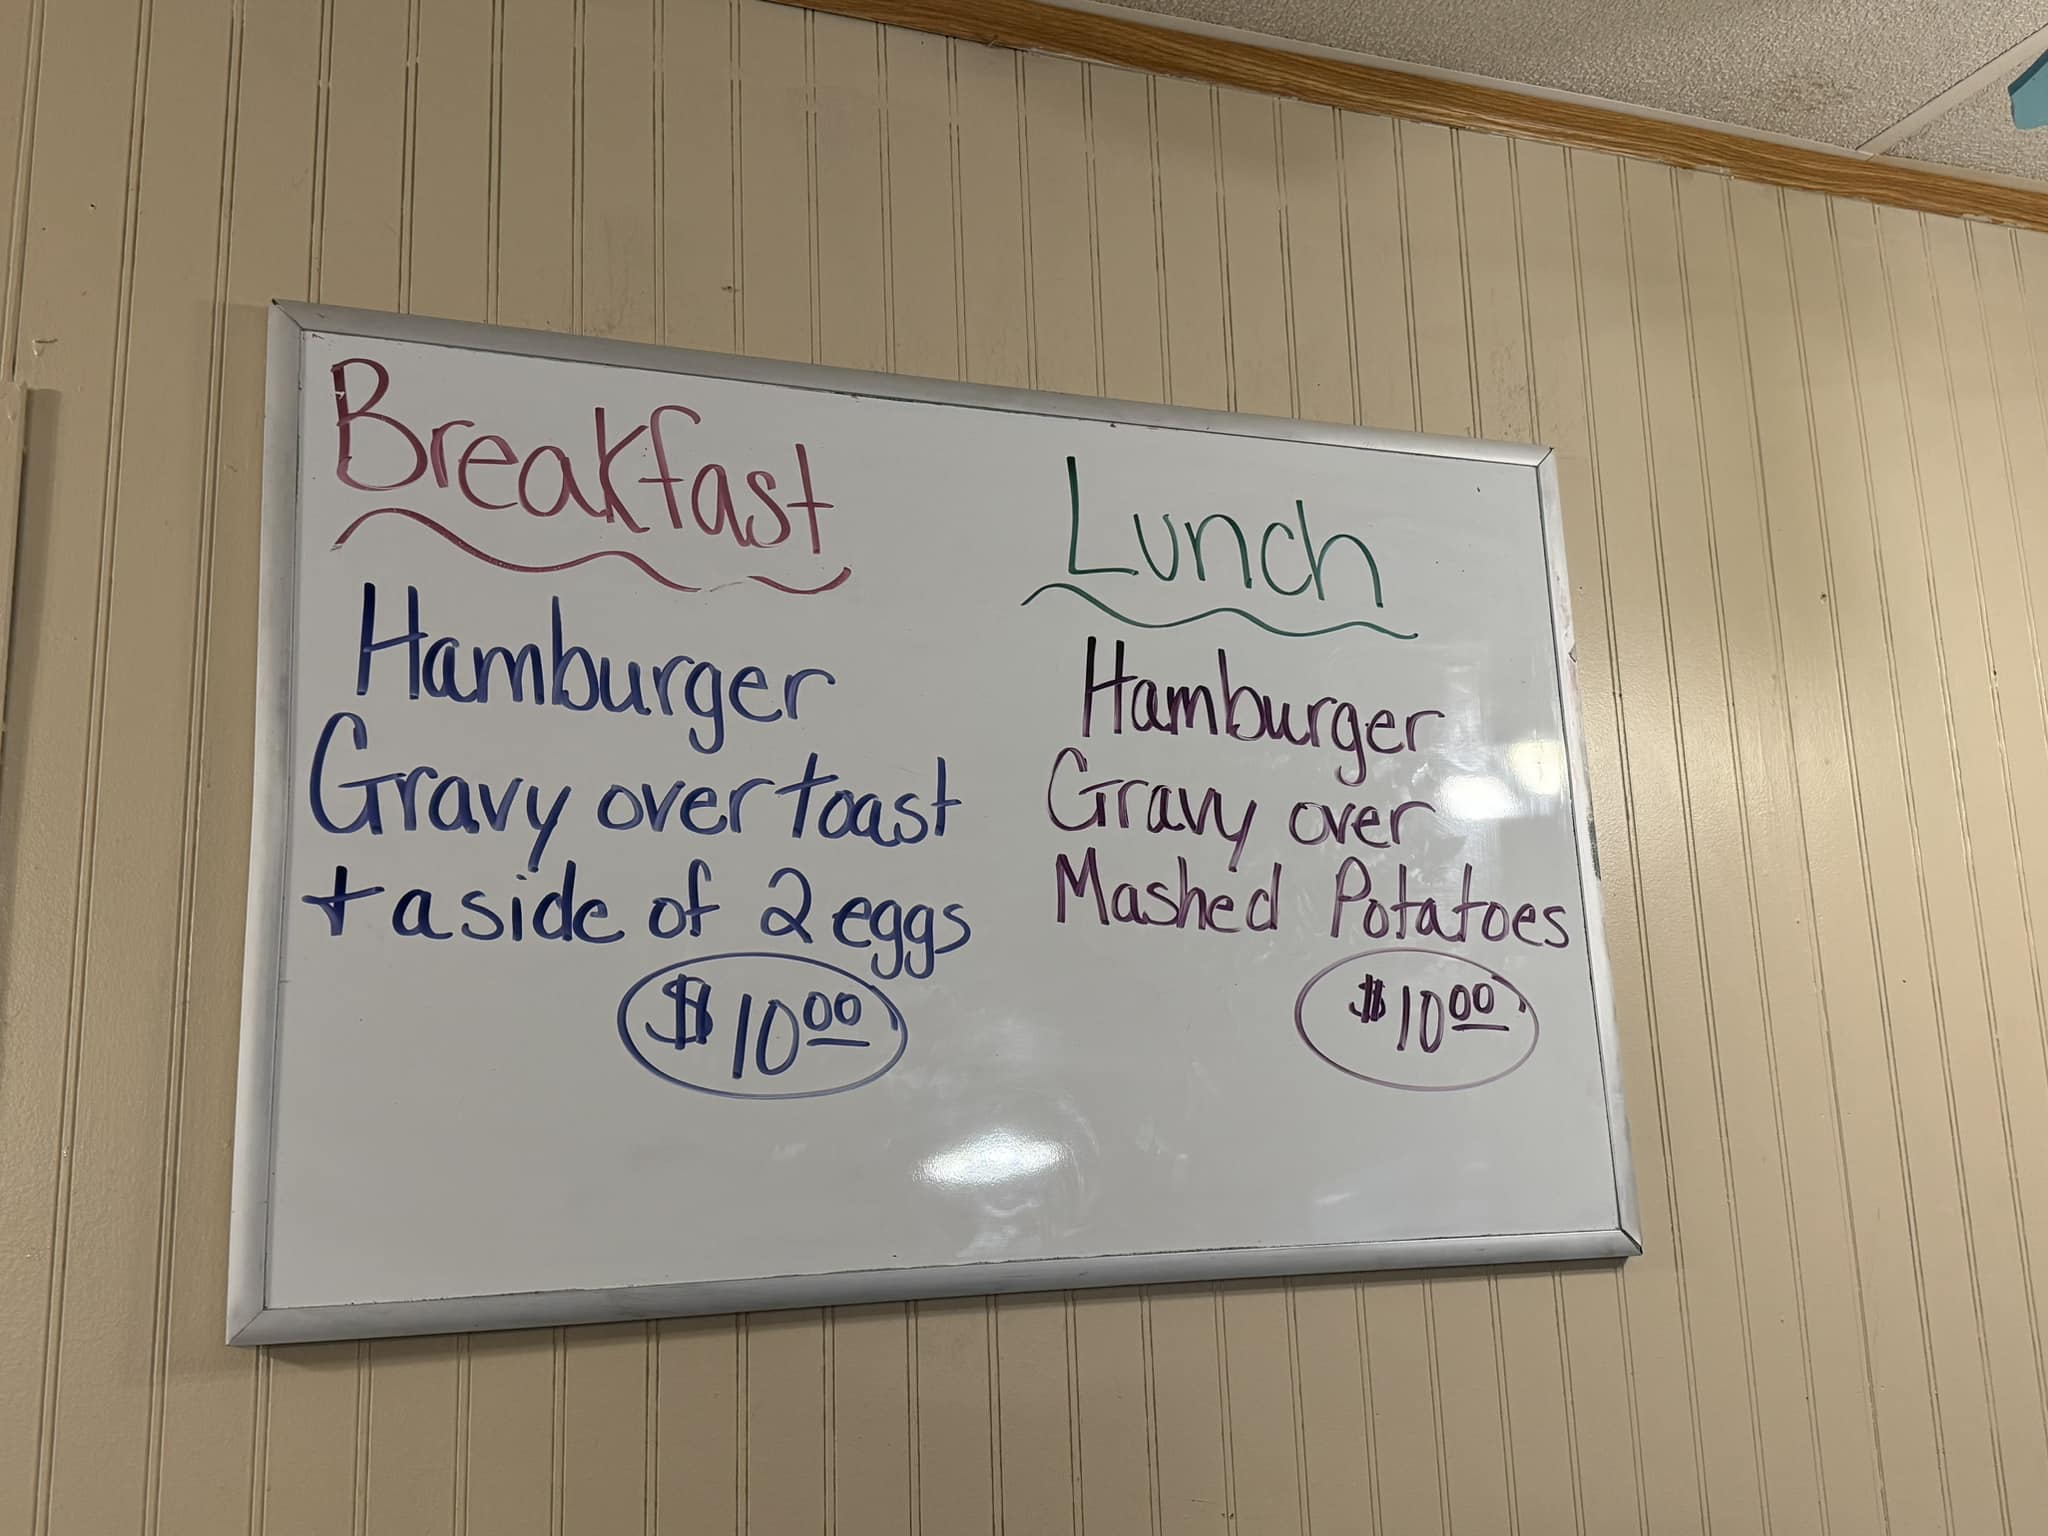 Breakfast
Hamburger
Gravy over toast
+ a side of 2 eggs
$10.00
Lunch
Hamburger
Gravy over
Mashed Potatoes
$10.00